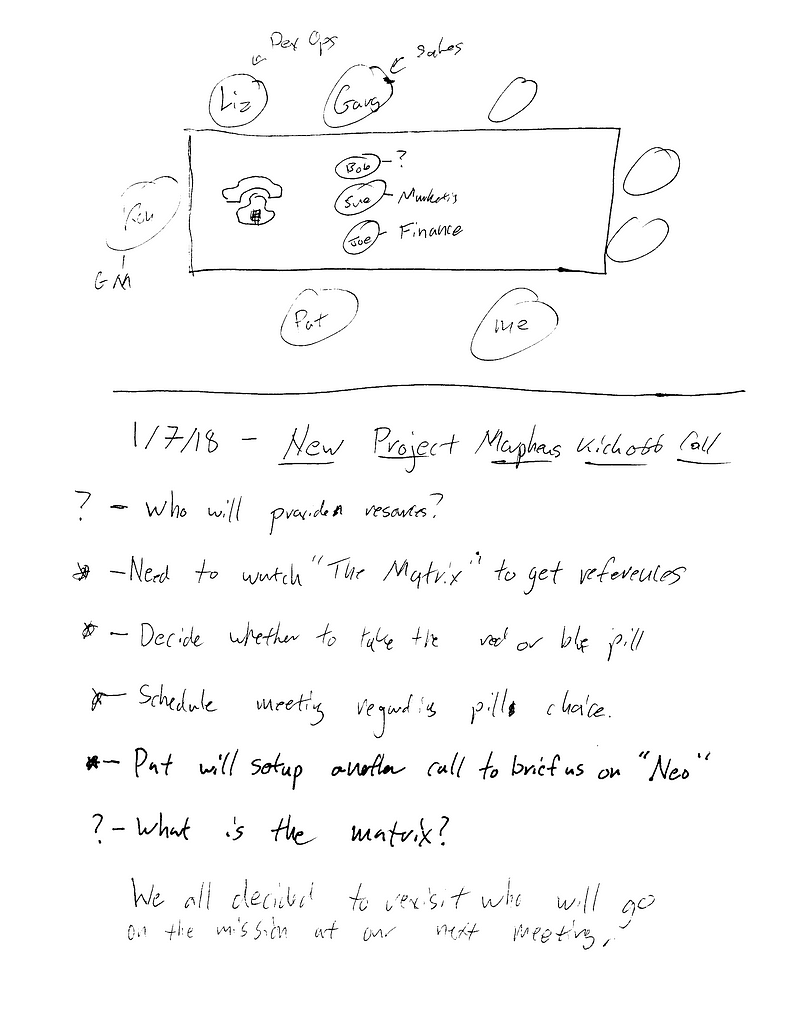 Dev Ops
Sales
Liz
Garg
Bob - ?
Sue - Marketing
Joe - Finance
GM
Pat
me
1/7/18 - New Project Morpheus Kickoff Call
? - Who will provide resources?
* - Need to watch "The Matrix" to get references
* - Decide whether to take the red or blue pill
* - Schedule meeting regarding pill choice.
* - Pat will setup another call to brief us on "Neo"
? - What is the matrix?
We all decided to revisit who will go
on the mission at our next meeting.